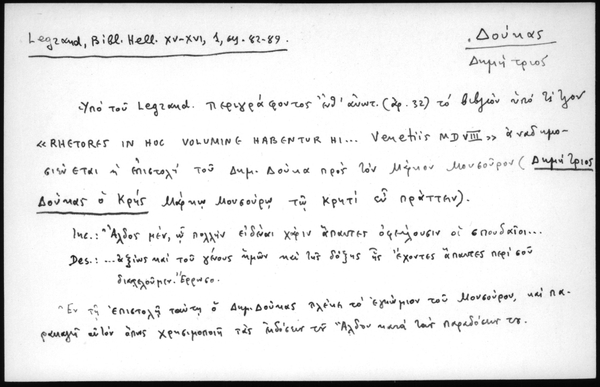 Legrand, Bibl. Hell. XV-XVI, 1, σσ. 82-89.
Δούκας
Δημήτριος
Ὑπὸ τοῦ Legrand περιγράφοντος ἐνθ' ἀνωτ. (ἀρ. 32) τὸ βιβλίον ὑπὸ τίτλον
« RHETORES IN HOC VOLUMINE HABENTUR HI... Venetiis MDVIII » ἀναδημο-
σιεύεται ἡ ἐπιστολὴ τοῦ Δημ. Δούκα πρὸς τὸν Μάρκον Μουσοῦρον ( Δημήτριος
Δούκας ὁ Κρὴς Μάρκῳ Μουσούρῳ τῷ Κρητὶ εὖ πράττειν).
Inc.: Ἄλδος μέν, ᾧ πολλὴν εἰδέναι χάριν ἅπαντες ὀφείλουσιν οἱ σπουδαῖοι...
Des.: ...ἀξίως καὶ τοῦ γένους ἡμῶν καὶ τῆς δόξης ἧς ἔχοντες ἅπαντες περὶ σοῦ
διατελοῦμεν. Ἔρρωσο.
Ἐν τῇ ἐπιστολῇ ταύτῃ ὁ Δημ. Δούκας πλέκει τὸ ἐγκώμιον τοῦ Μουσούρου, καὶ πα-
ρακαλεῖ αὐτὸν ὅπως χρησιμοποιῇ τὰς ἐκδόσεις τοῦ Ἄλδου κατὰ τὰς παραδόσεις του.